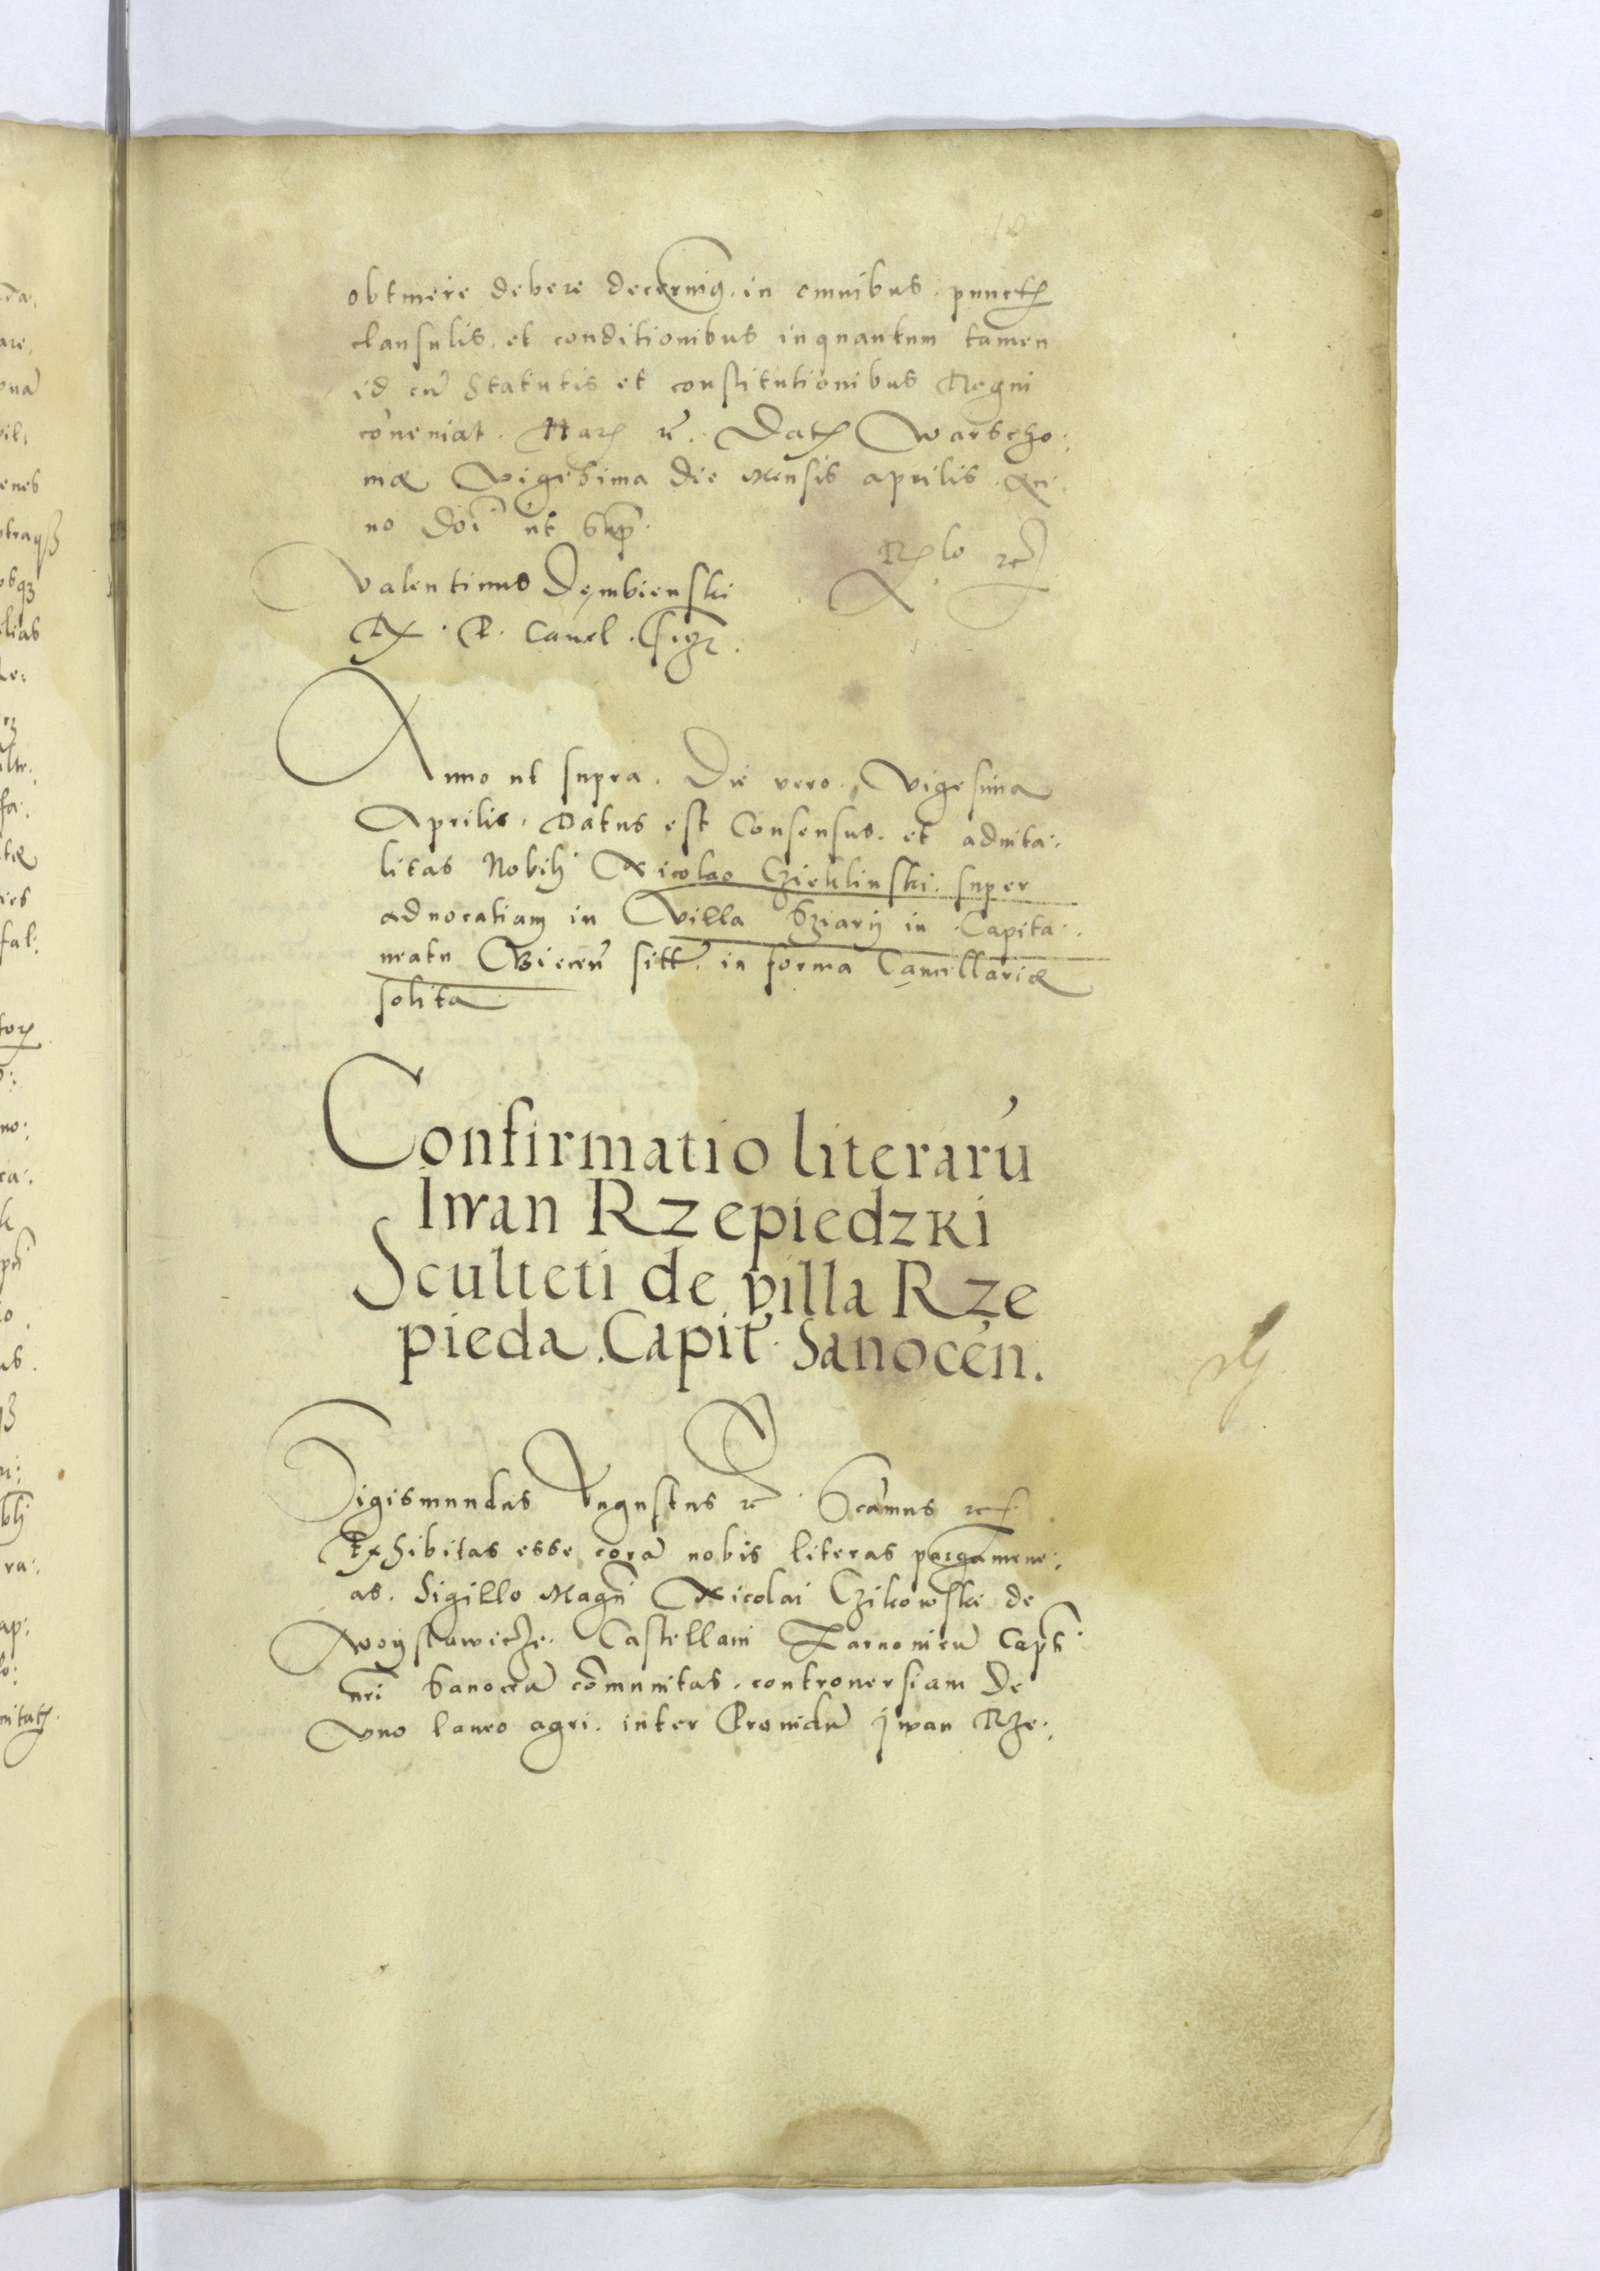 obtinere debere decernim9. in omnibus. punctꝭ
clausulis. et conditionibus inquantum tamen
id cū Statutis et constitutionibus Regni
cōveniat. Harꝝ rc̄. Datꝭ Warscho:
niæ Vigesima die Mensis aprilis. An:
no Doī ut Sup̄.
Rlo rc̄
Valentinus Dembienski
R. P. Cancel. ssgr.
Anno ut supra. Die vero. Vigesima
Aprilis. Datus est Consensus. et advita:
litas Nobili Nicolao Czieklinski. super
advocatiam in Villa Sziarÿ in Capita:
neatu Biecen̄ sitt. in forma Cancellariæ
solita
Confirmatio literarū
Iwan Rzepiedzki
Sculteti de villa Rze
pieda. Capit̄. Sanocen̄.
Sigismundus Augustus rc. Scamus rc.
Exhibitas esse corā nobis literas pargamene:
as. Sigillo Magn̄i Nicolai Czikowski de
Woÿslawicze. Castellani Zarnovien̄ Capti
nr̄i Sanocen̄ cōmunitas. controversiam de
Vno laneo agri. inter Providū jwan Rze: